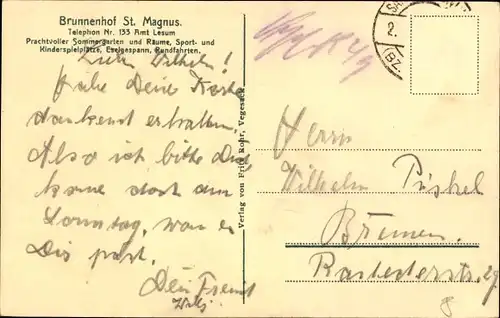 Brunnenhof St. Magnus.
Telephon Nr. 133 Amt Lesum
Prachtvoller Sommergarten und Räume, Sport- und
Kinderspielplätze, Eselgespann, Rundfahrten.
Lieber Wilhelm!
habe Deine Karte
dankend erhalten.
Also ich bitte Dich
komme doch am
Sonntag, wenn es
Dir passt.
Dein Freund
Willy
Verlag von Fritz Rohr, Vegesack
Herrn
Wilhelm Püschel
Bremen.
29
2.
(BZ.